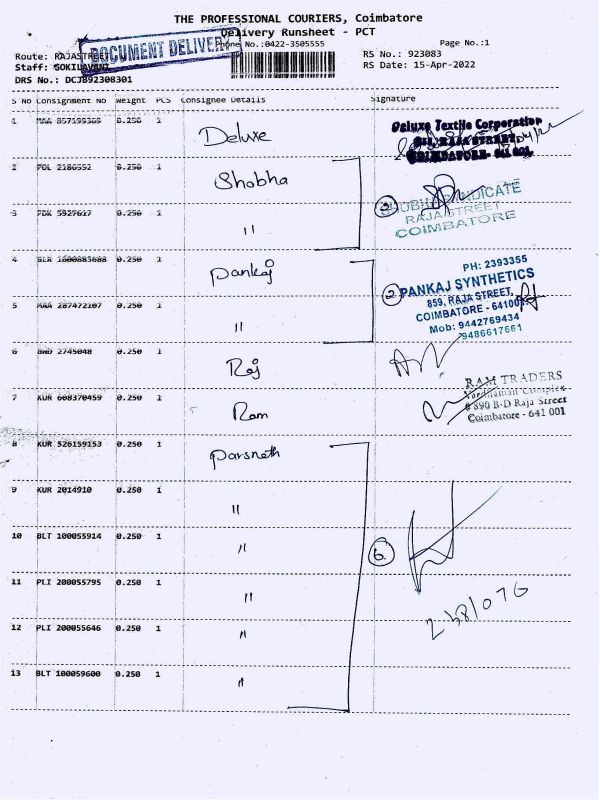 THE PROFESSIONAL COURIERS, Coimbatore
Delivery Runsheet - PCT
DOCUMENT DELIVERY
Phone No.:0422-3505555
Page No.:1
Route: RAJASTREET
RS No.: 923083
Staff: GOKILAVANI
RS Date: 15-Apr-2022
DRS No.: DCJB92308301
S No Consignment No Weight PCS Consignee Details Signature
1 MAA 857199369 0.250 1 Deluxe
Deluxe Textile Corporation
RAJA STREET
COIMBATORE- 641 001.
2 POL 2180552 0.250 1 Shobha
3 PDK 5927617 0.250 1 "
3
SHOBHA SYNDICATE
RAJA STREET
COIMBATORE
4 BLR 1600883688 0.250 1 Pankaj
5 MAA 287472107 0.250 1 "
2
PH: 2393355
PANKAJ SYNTHETICS
859, RAJA STREET,
COIMBATORE - 641001.
Mob: 9442769434
9486617661
6 BWD 2745048 0.250 1 Raj
7 KUR 608370459 0.250 1 Ram
RAM TRADERS
Vardhaman Complex
# 890 B-D Raja Street
Coimbatore - 641 001
8 KUR 526159153 0.250 1 Parsnath
9 KUR 2014910 0.250 1 "
10 BLT 100055914 0.250 1 "
6
11 PLI 200055795 0.250 1 "
12 PLI 200055646 0.250 1 "
13 BLT 100059600 0.250 1 "